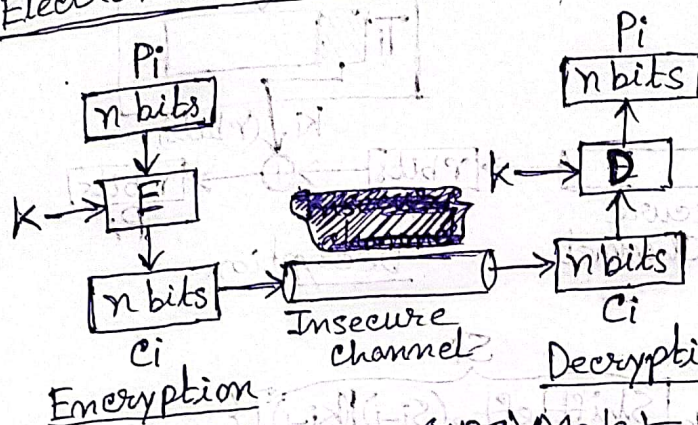 Pi
n bits
K
E
n bits
Ci
Encryption
Insecure
Channel
Pi
n bits
K
D
n bits
Ci